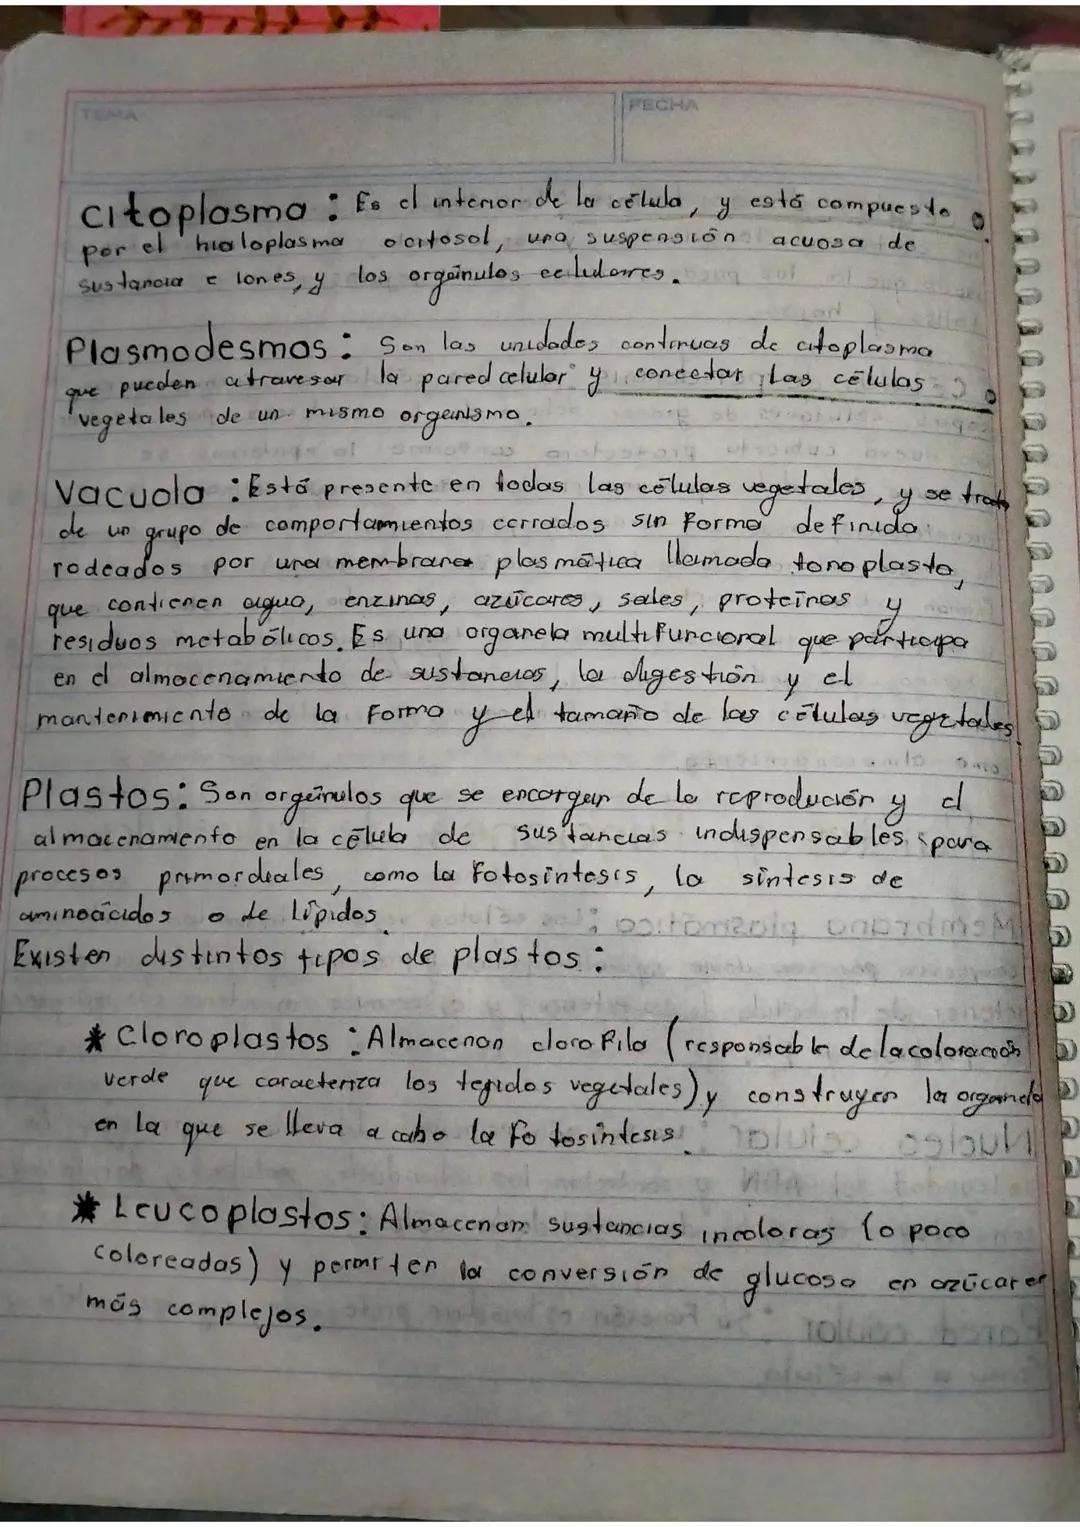 TEMA
FECHA
citoplasma : Es el interior de la célula, y está compuesto
por el hialoplasma o citosol, una suspensión acuosa de
sustancia e iones, y los orgánulos celulares.
Plasmodesmos : Son las unidades continuas de citoplasma
que pueden atravesar la pared celular y conectar las células
vegetales de un mismo organismo.
Vacuola : Está presente en todas las células vegetales, y se trata
de un grupo de comportamientos cerrados sin forma definida
rodeados por una membrana plasmática llamada tonoplasto,
que contienen agua, enzinas, azúcares, sales, proteínas y
residuos metabólicos. Es una organela multifuncional que participa
en el almacenamiento de sustancias, la digestión y el
mantenimiento de la forma y el tamaño de las células vegetales.
Plastos: Son orgánulos que se encargan de la reprodución y el
almacenamiento en la célula de sustancias indispensables para
procesos primordiales, como la fotosíntesis, la síntesis de
aminoácidos o de lípidos.
Existen distintos tipos de plastos :
* Cloroplastos : Almacenan clorofila (responsable de la coloración
verde que caracteriza los tejidos vegetales) y construyen la organela
en la que se lleva a cabo la fotosíntesis.
* Leucoplastos: Almacenan sustancias incoloras (o poco
coloreadas) y permiten la conversión de glucosa en azúcares
más complejos.